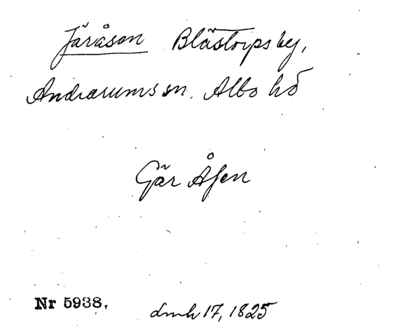 Järåsen Blästorps by,
Andrarums sn. Albo hd
Gär Åsen
Nr 5938.
lmh 17, 1825